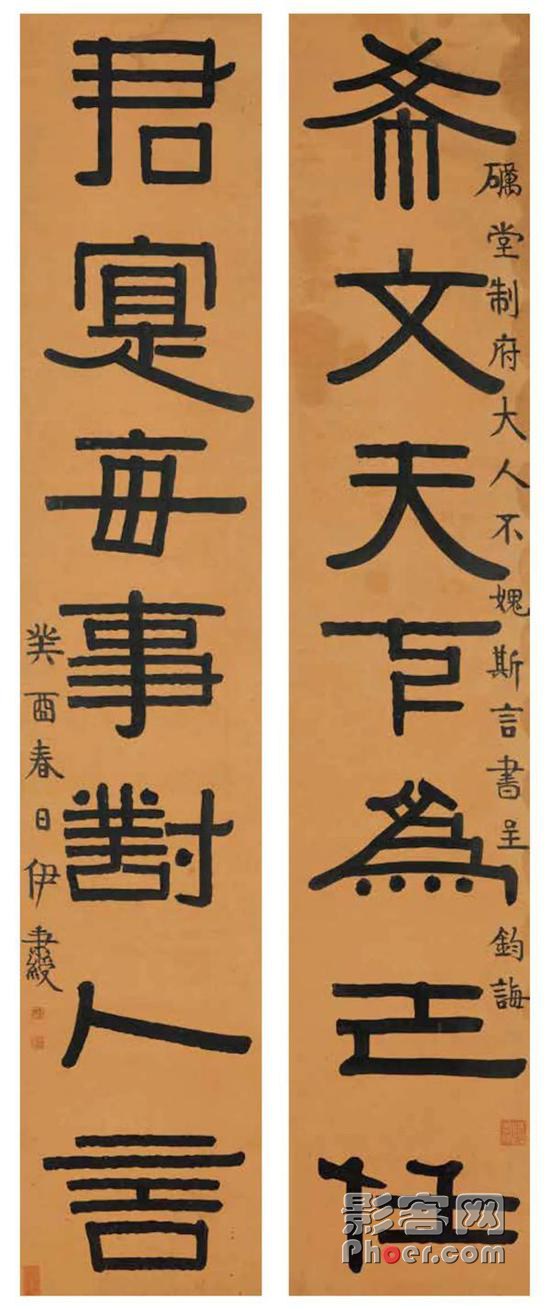 礪堂制府大人不媿斯言書呈 鈞誨
希文天下為己任
君寔每事對人言
癸酉春日伊秉綬
影客网
Phoer.com